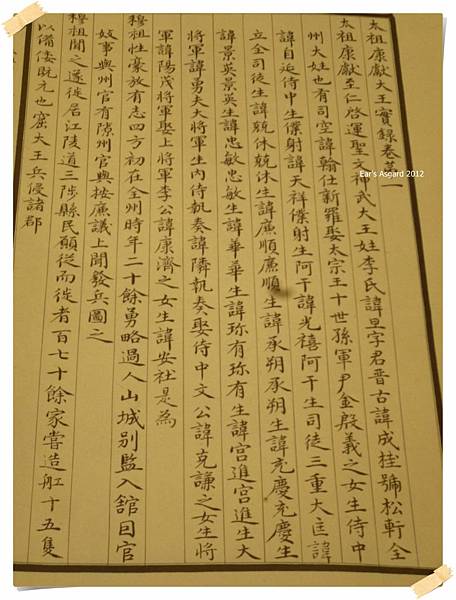 太祖康獻大王實錄卷第一
太祖康獻至仁啓運聖文神武大王姓李氏諱旦字君晋古諱成桂號松軒全
州大姓也有司空諱翰仕新羅娶太宗王十世孫軍尹金殷義之女生侍中
諱自延侍中生僕射諱天祥僕射生阿干諱光禧阿干生司徒三重大匡諱
立全司徒生諱兢休兢休生諱廉順廉順生諱承朔承朔生諱充慶充慶生
諱景英景英生諱忠敏忠敏生諱華華生諱珎有珎有生諱宮進宮進生大
將軍諱勇夫大將軍生內侍執奏諱隣執奏娶侍中文公諱克謙之女生將
軍諱陽茂將軍娶上將軍李公諱康濟之女生諱安社是為
穆祖性豪放有志四方初在全州時年二十餘勇略過人山城別監入舘因官
妓事與州官有隙州官與按廉議上聞發兵圖之
穆祖聞之遂徙居江陵道三陟縣民願從而徙者百七十餘家嘗造舡十五隻
以備倭既元也窟大王兵侵諸郡
Ear's Asgard 2012